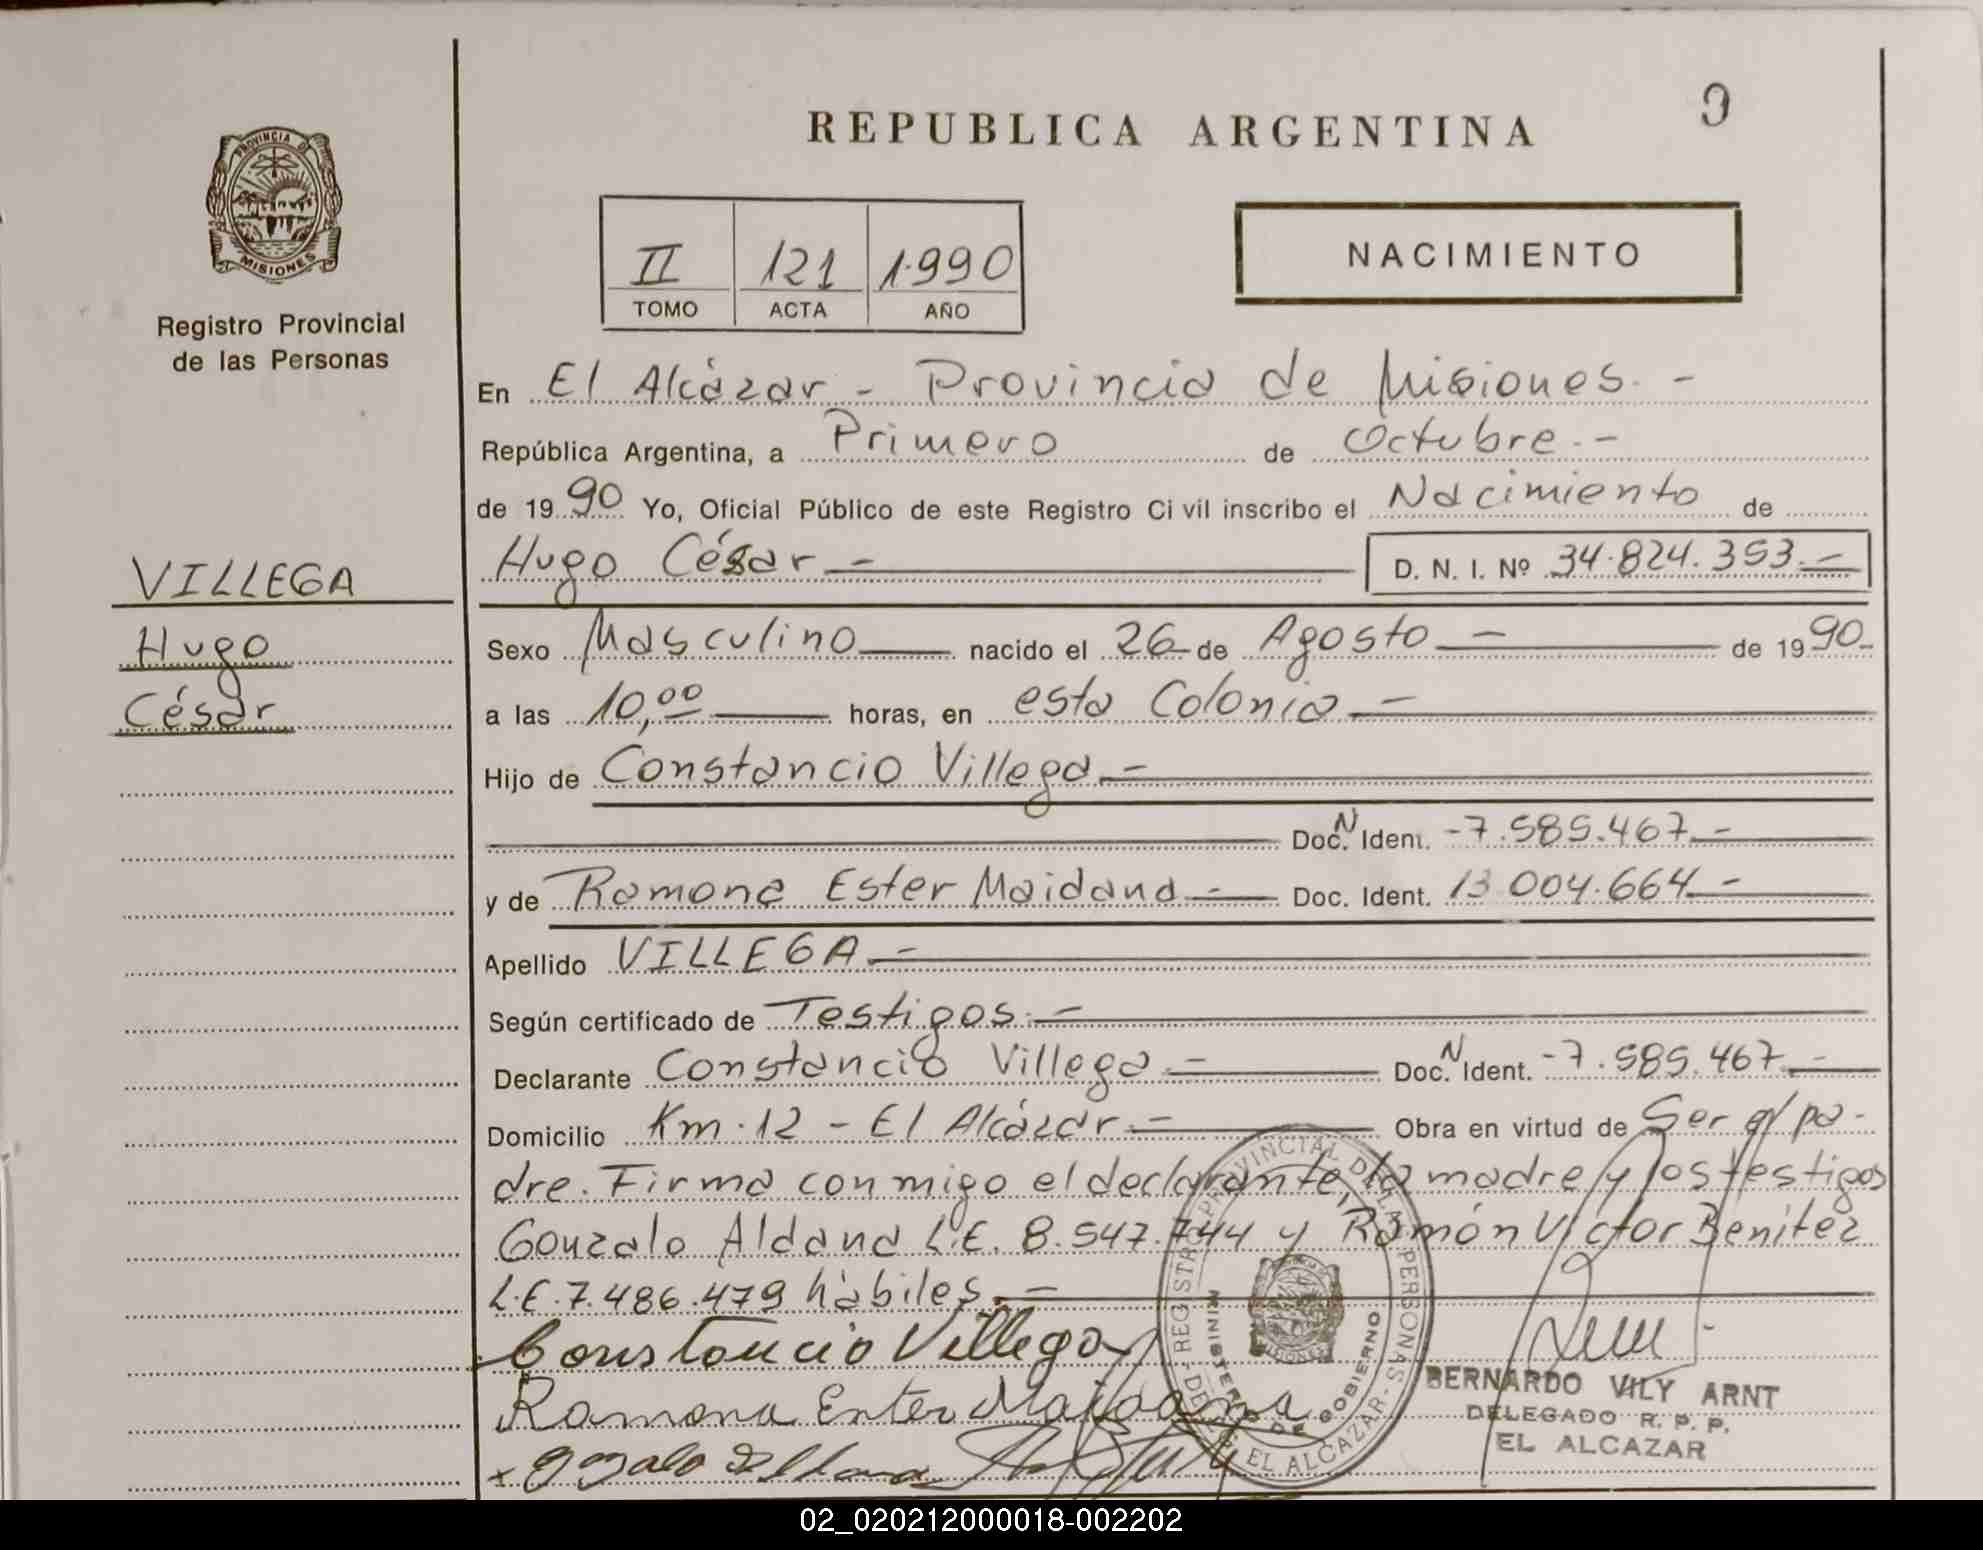 REPUBLICA ARGENTINA
PROVINCIA DE
MISIONES
Registro Provincial
de las Personas
II 121 1.990
TOMO ACTA AÑO
NACIMIENTO
En El Alcázar - Provincia de Misiones. -
República Argentina, a Primero de Octubre. -
de 1990 Yo, Oficial Público de este Registro Civil inscribo el Nacimiento de
VILLEGA
Hugo César - D. N. I. Nº 34.824.353. -
Hugo
Sexo Masculino nacido el 26 de Agosto - de 1990.-
César
a las 10,00 horas, en esta Colonia -
Hijo de Constancio Villega -
Doc. N Ident. -7.585.467. -
y de Ramona Ester Maidana - Doc. Ident. 13.004.664 -
Apellido VILLEGA -
Según certificado de Testigos. -
Declarante Constancio Villega - Doc. N Ident. -7.585.467. -
Domicilio Km. 12 - El Alcázar - Obra en virtud de Ser el pa-
dre. Firma conmigo el declarante, la madre y los testigos
Gonzalo Aldana L.E. 8.547.744 y Ramón Victor Benitez
L.E. 7.486.479 hábiles. -
Constancio Villega
Ramona Ester Maidana
BERNARDO VILY ARNT
DELEGADO R. P. P.
EL ALCAZAR
REGISTRO PROVINCIAL DE LAS PERSONAS
MINISTERIO DE GOBIERNO
EL ALCAZAR
02_020212000018-002202